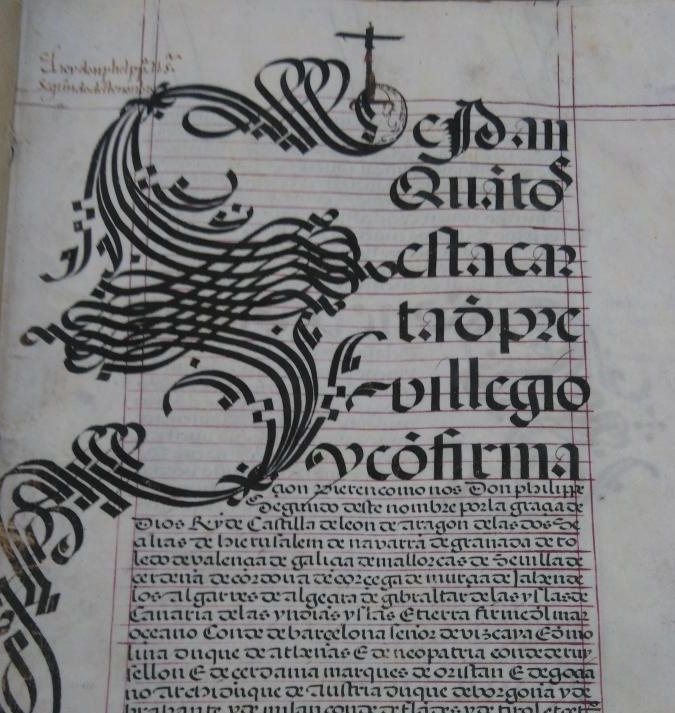 El rey don phelipe n. s.
Segundo deste nonbre
Sepan
Quātos
esta car
ta đ pre
villegio
y cōfirma
çion vieren como nos Don philippe
Segundo deste nombre por la graça de
Dios Rey de Castilla de leon de aragon de las dos Se
çilias de hierusalem de navarra de granada de to
ledo de valençia de galiçia de mallorcas de Sevilla de
cerdeña de cordova de corçega de murçia de Jahen de
los algarves de algezira de gibraltar de las yslas de
Canaria de las yndias yslas E tierra firme đl mar
oceano Conde de barçelona señor de vizcaya E đ mo
lina duque de athenas E de neopatria conde de ruy
sellon E de cerdania marques de oristan E de goçia
no Archiduque de Austria duque de borgoña y de
brabante y de milan conde de flādes y de tirol etc